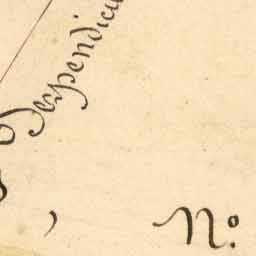 Perpendicu
, No.